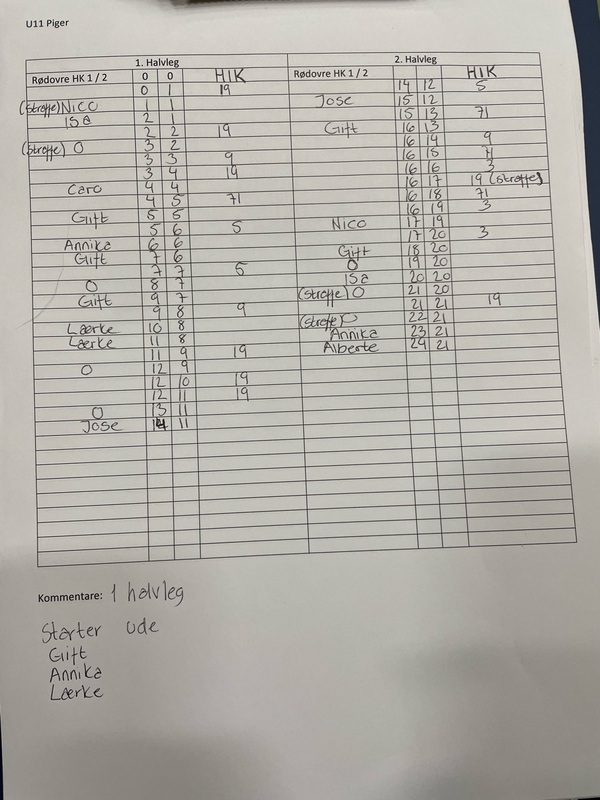 U11 Piger
1. Halvleg 2. Halvleg
Rødovre HK 1 / 2 0 0 HIK
0 1 19
(stroffe) Nico 1 1
ISa 2 1
2 2 19
(stroffe) O 3 2
3 3 9
3 4 19
Caro 4 4
4 5 71
Gift 5 5
5 6 5
Annika 6 6
Gift 7 6
7 7 5
O 8 7
Gift 9 7
9 8 9
Lærke 10 8
Lærke 11 8
11 9 19
O 12 9
12 10 19
12 11 19
O 13 11
Jose 14 11
Rødovre HK 1 / 2 HIK
14 12 5
Jose 15 12
15 13 71
Gift 16 13
16 14 9
16 15 71
16 16 3
16 17 19 (stroffe)
16 18 71
16 19 3
Nico 17 19
17 20 3
Gift 18 20
O 19 20
ISa 20 20
(stroffe) O 21 20
21 21 19
(stroffe) O 22 21
Annika 23 21
Alberte 24 21
Kommentare: 1 halvleg
Starter ude
Gift
Annika
Lærke